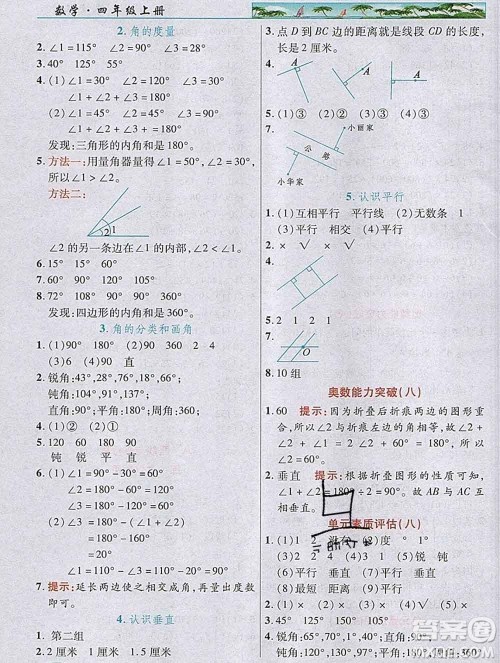 数学·四年级上册
2.角的度量
1. ∠1=115° ∠2=90° ∠3=75°
3. 40° 125° 55°
4. ∠1=75° ∠2=30° ∠3=75°
∠1+∠2+∠3=180°
发现:三角形的内角和是180°。
5. 方法一:用量角器量得∠1=50°,∠2=30°,
所以∠1>∠2。
方法二:
2 1
∠2的另一条边在∠1的内部,∠2<∠1。
6. 15° 15° 60°
7. 60° 90° 120° 105°
8. 72° 108° 90° 90° 360°
发现:四边形的内角和是360°。
3.角的分类和画角
1. (1)90 (2)180 (3)90 90 360 2 4
(4)90 直
2. 锐角:43°,28°,16°,71°,36°;
钝角:104°,91°,137°;
直角:90°;平角:180°;周角:360°。
4. (1)② (2)①
5. 120 60 180 90
钝 锐 平 直
6. ∠1=90°-30°=60°
∠2=180°-90°-30°=60°
∠3=180°-90°=90°
∠2=180°-(180°-20°)
=180°-160°
=20°
∠1=180°-90°-20°=70°
7. 提示:延长两边使之相交成角,再量出度数
即可。
4.认识垂直
1. 第二组
2. 1厘米 1厘米 1.5厘米 1.5厘米
3. 点D到BC边的距离就是线段CD的长度,
长是2厘米。
4.
A A A
6. (1)③ (2)① (3)③ (4)②
7.
小丽家
小巷
小华家
5.认识平行
1. (1)互相平行 平行线 (2)无数条 1
(3)平行 相交 (4)平行
2. × √ × √
3.
5. 2 1 2 1
6.
O
8. 10组
奥数能力突破(八)
1. 60 提示:因为折叠后折痕两边的图形重
合,所以∠2与折痕左边的角相等,故∠1+
∠2+∠2=180°,又因为∠1=∠2,所以
∠1=∠2=60°。
2. 垂直 提示:根据折叠图形的性质可知,
∠1+∠2=180°÷2=90°。故AB与AC互
相垂直。
单元素质评估(八)
1. (1)1 2 (2)度 ° 1°
(3)2 2 4 (4)3 2 1 (5)锐 钝
(6)平行 垂直 (7)平行 垂直
(8)最短 距离
2. (1)② (2)② (3)② (4)③ (5)①
3. (1)× (2)√ (3)× (4)√ (5)×
4. 锐角:65°,70°,1°,40°;直角:90°;
钝角:97°,138°;平角:180°;周角:360°。
答案圈